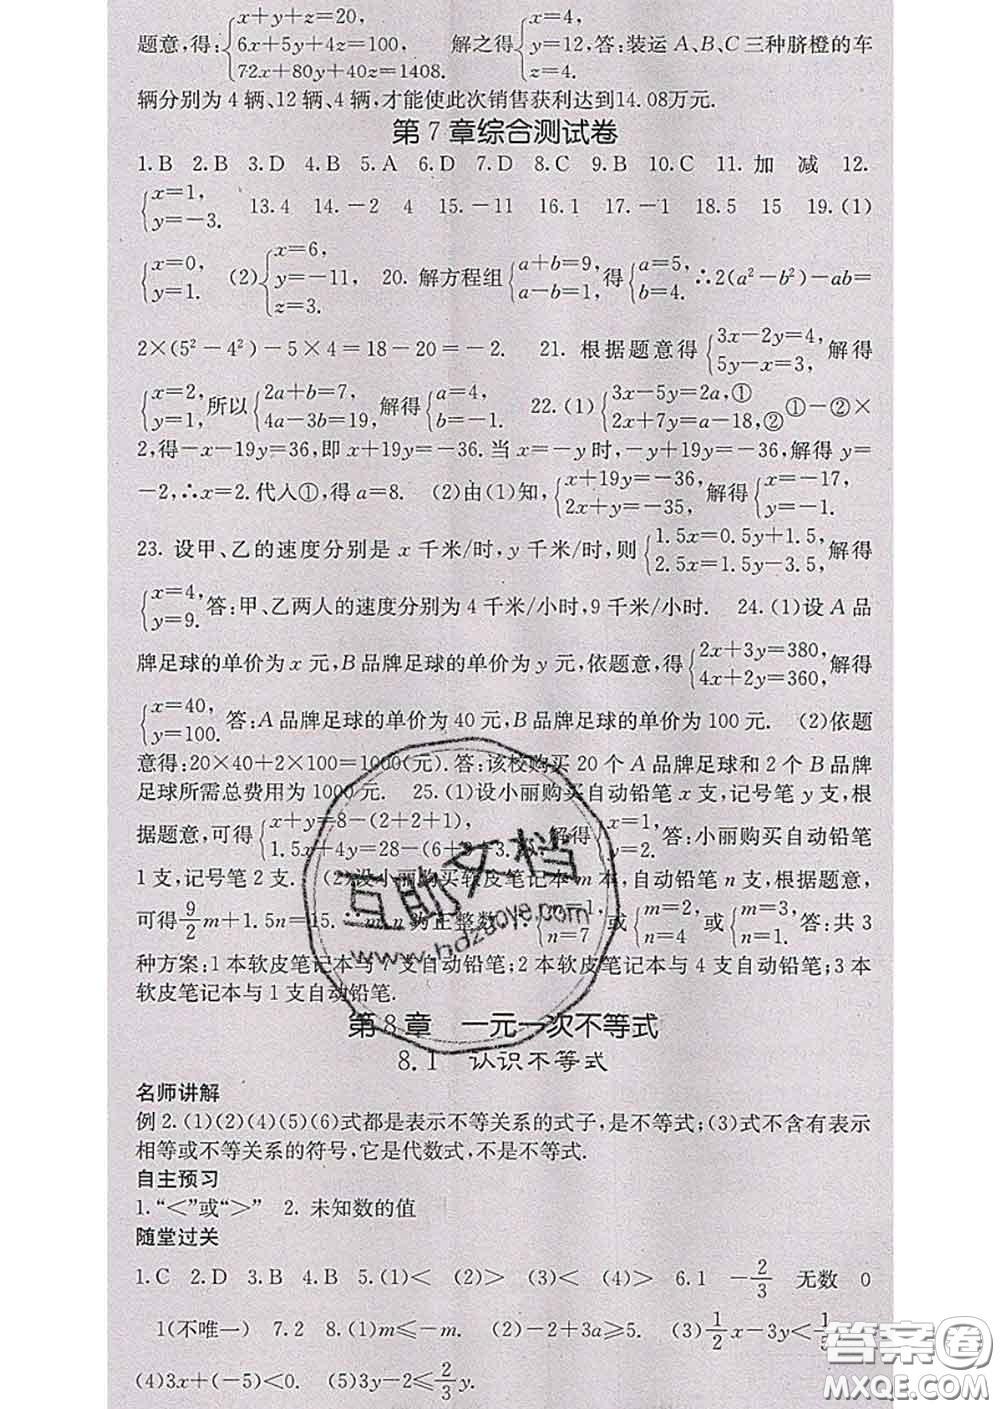 题意,得:{x+y+z=20, 6x+5y+4z=100, 72x+80y+40z=1408. 解之得{x=4, y=12, z=4. 答:装运A、B、C三种脐橙的车
辆分别为4辆、12辆、4辆,才能使此次销售获利达到14.08万元.
第7章综合测试卷
1.B 2.B 3.D 4.B 5.A 6.D 7.D 8.C 9.B 10.C 11.加 减 12.
{x=1, y=-3. 13.4 14.-2 4 15.-11 16.1 17.-1 18.5 15 19.(1)
{x=0, y=1. (2){x=6, y=-11, z=3. 20.解方程组{a+b=9, a-b=1, 得{a=5, b=4. ∴2(a²-b²)-ab=
2×(5²-4²)-5×4=18-20=-2. 21.根据题意得{3x-2y=4, 5y-x=3, 解得
{x=2, y=1, 所以{2a+b=7, 4a-3b=19, 解得{a=4, b=-1. 22.(1){3x-5y=2a,① 2x+7y=a-18,② ①-②×
2,得-x-19y=36,即x+19y=-36.当x=-y时,-y+19y=-36,解得y=
-2,∴x=2.代人①,得a=8. (2)由(1)知,{x+19y=-36, 2x+y=-35, 解得{x=-17, y=-1.
23.设甲、乙的速度分别是x千米/时,y千米/时,则{1.5x=0.5y+1.5, 2.5x=1.5y-3.5, 解得
{x=4, y=9. 答:甲、乙两人的速度分别为4千米/小时,9千米/小时. 24.(1)设A品
牌足球的单价为x元,B品牌足球的单价为y元,依题意,得{2x+3y=380, 4x+2y=360, 解得
{x=40, y=100. 答:A品牌足球的单价为40元,B品牌足球的单价为100元. (2)依题
意得:20×40+2×100=1000(元).答:该校购买20个A品牌足球和2个B品牌
足球所需总费用为1000元. 25.(1)设小丽购买自动铅笔x支,记号笔y支,根
据题意,可得{x+y=8-(2+2+1), 1.5x+4y=28-(6+ 解得{x=1, y=2. 答:小丽购买自动铅笔
1支,记号笔2支. (2)设小丽购买软皮笔记本m本,自动铅笔n支,根据题意,
可得9/2m+1.5n=15.∵m,n为正整数,∴{m=1, n=7 或{m=2, n=4 或{m=3, n=1. 答:共3
种方案:1本软皮笔记本与7支自动铅笔;2本软皮笔记本与4支自动铅笔;3本
软皮笔记本与1支自动铅笔.
互助文档
www.hdzuoye.com
第8章 一元一次不等式
8.1 认识不等式
名师讲解
例2.(1)(2)(4)(5)(6)式都是表示不等关系的式子,是不等式;(3)式不含有表示
相等或不等关系的符号,它是代数式,不是不等式.
自主预习
1.“<”或“>” 2.未知数的值
随堂过关
1.C 2.D 3.B 4.B 5.(1)< (2)> (3)< (4)> 6.1 -2/3 无数 0
1(不唯一) 7.2 8.(1)m≤-m. (2)-2+3a≥5. (3)1/2x-3y<1/5
(4)3x+(-5)<0. (5)3y-2≤2/3y.
答案圈
MXQE.COM